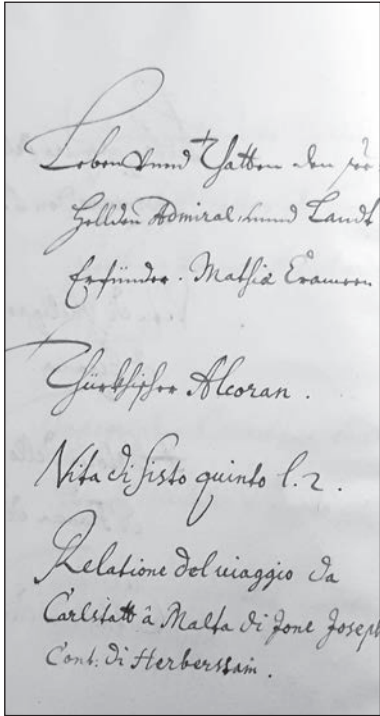 Leben Vnnd Thatten der see-
Hellden Admiral, unnd Landt
Erfünder. Mathia Cramern
Thürkhischer Alcoran.
Vita di Sisto quinto l. 2.
Relatione del uiaggio da
Carlstatt â Malta di Jone Joseph
Cont: di Herberstain.